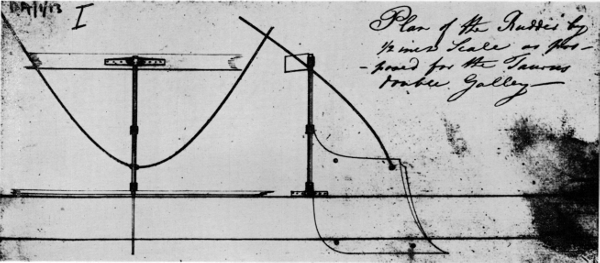 DA/1/13
I
Plan of the Rudder by
½ inch Scale as pro-
-posed for the Taurus
double Galley